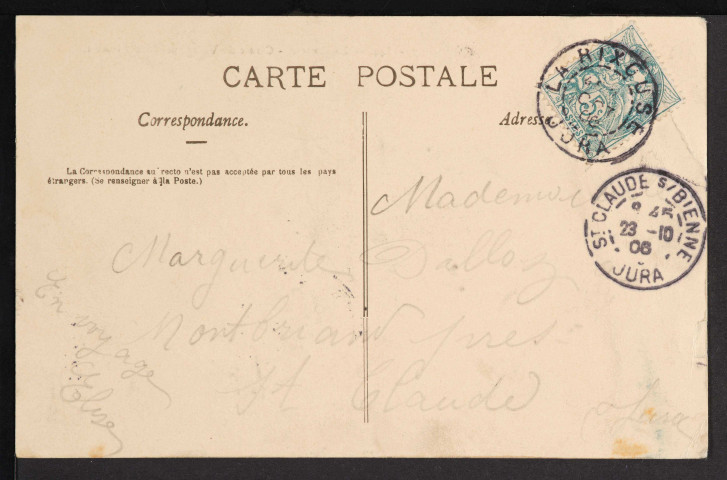 CARTE POSTALE
Correspondance.
Adresse
La Correspondance au recto n'est pas acceptée par tous les pays
étrangers. (Se renseigner à la Poste.)
LA RIXOUSE
JURA
ST CLAUDE S/BIENNE
23 -10
06
JURA
Mademoi
Marguerite Dalloz
Montbriand près
St Claude
Jura
En voyage
Elise